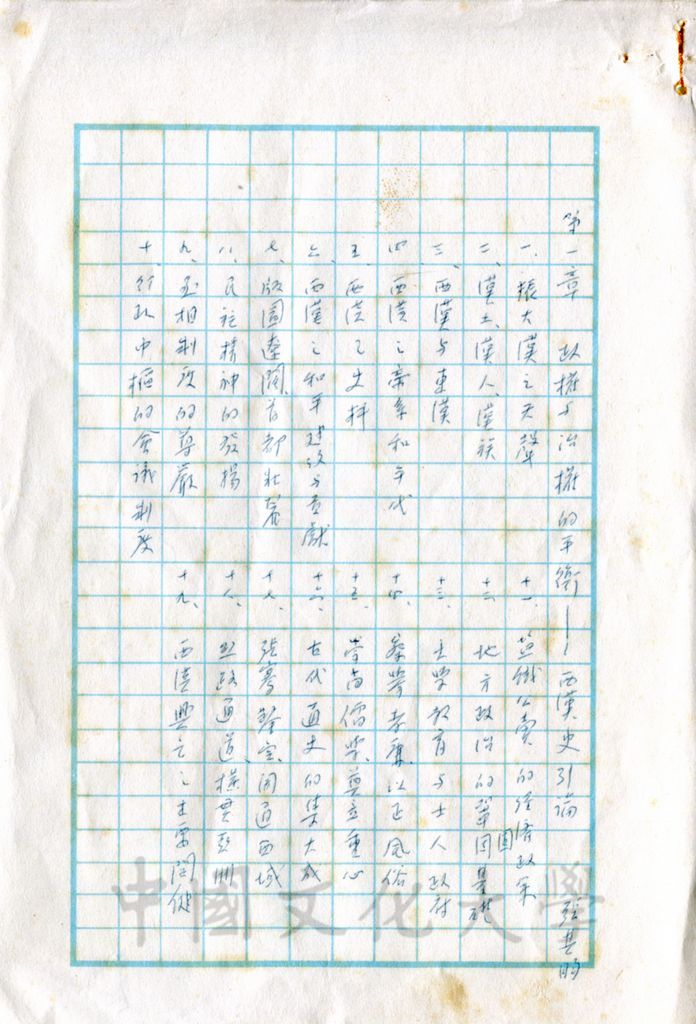 第一章 政權与治權的平衡——西漢史引論 張其昀
一、振大漢之天聲
二、漢土、漢人、漢族
三、西漢与東漢
四、西漢之帝系和年代
五、西漢之史料
六、西漢之和平建設与貢獻
七、版圖遼闊、首都壯麗
八、民族精神的發揚
九、丞相制度的尊嚴
十、行政中樞的會議制度
十一、鹽鐵公賣的經濟政策
十二、地方政治的鞏固基礎
十三、太學教育与士人政府
十四、察舉孝廉、以正風俗
十五、崇尚儒學、奠立重心
十六、古代通史的集大成
十七、張騫鑿空、開通西域
十八、絲路通道、橫貫亞洲
十九、西漢興亡之主要關鍵
中國文化大學